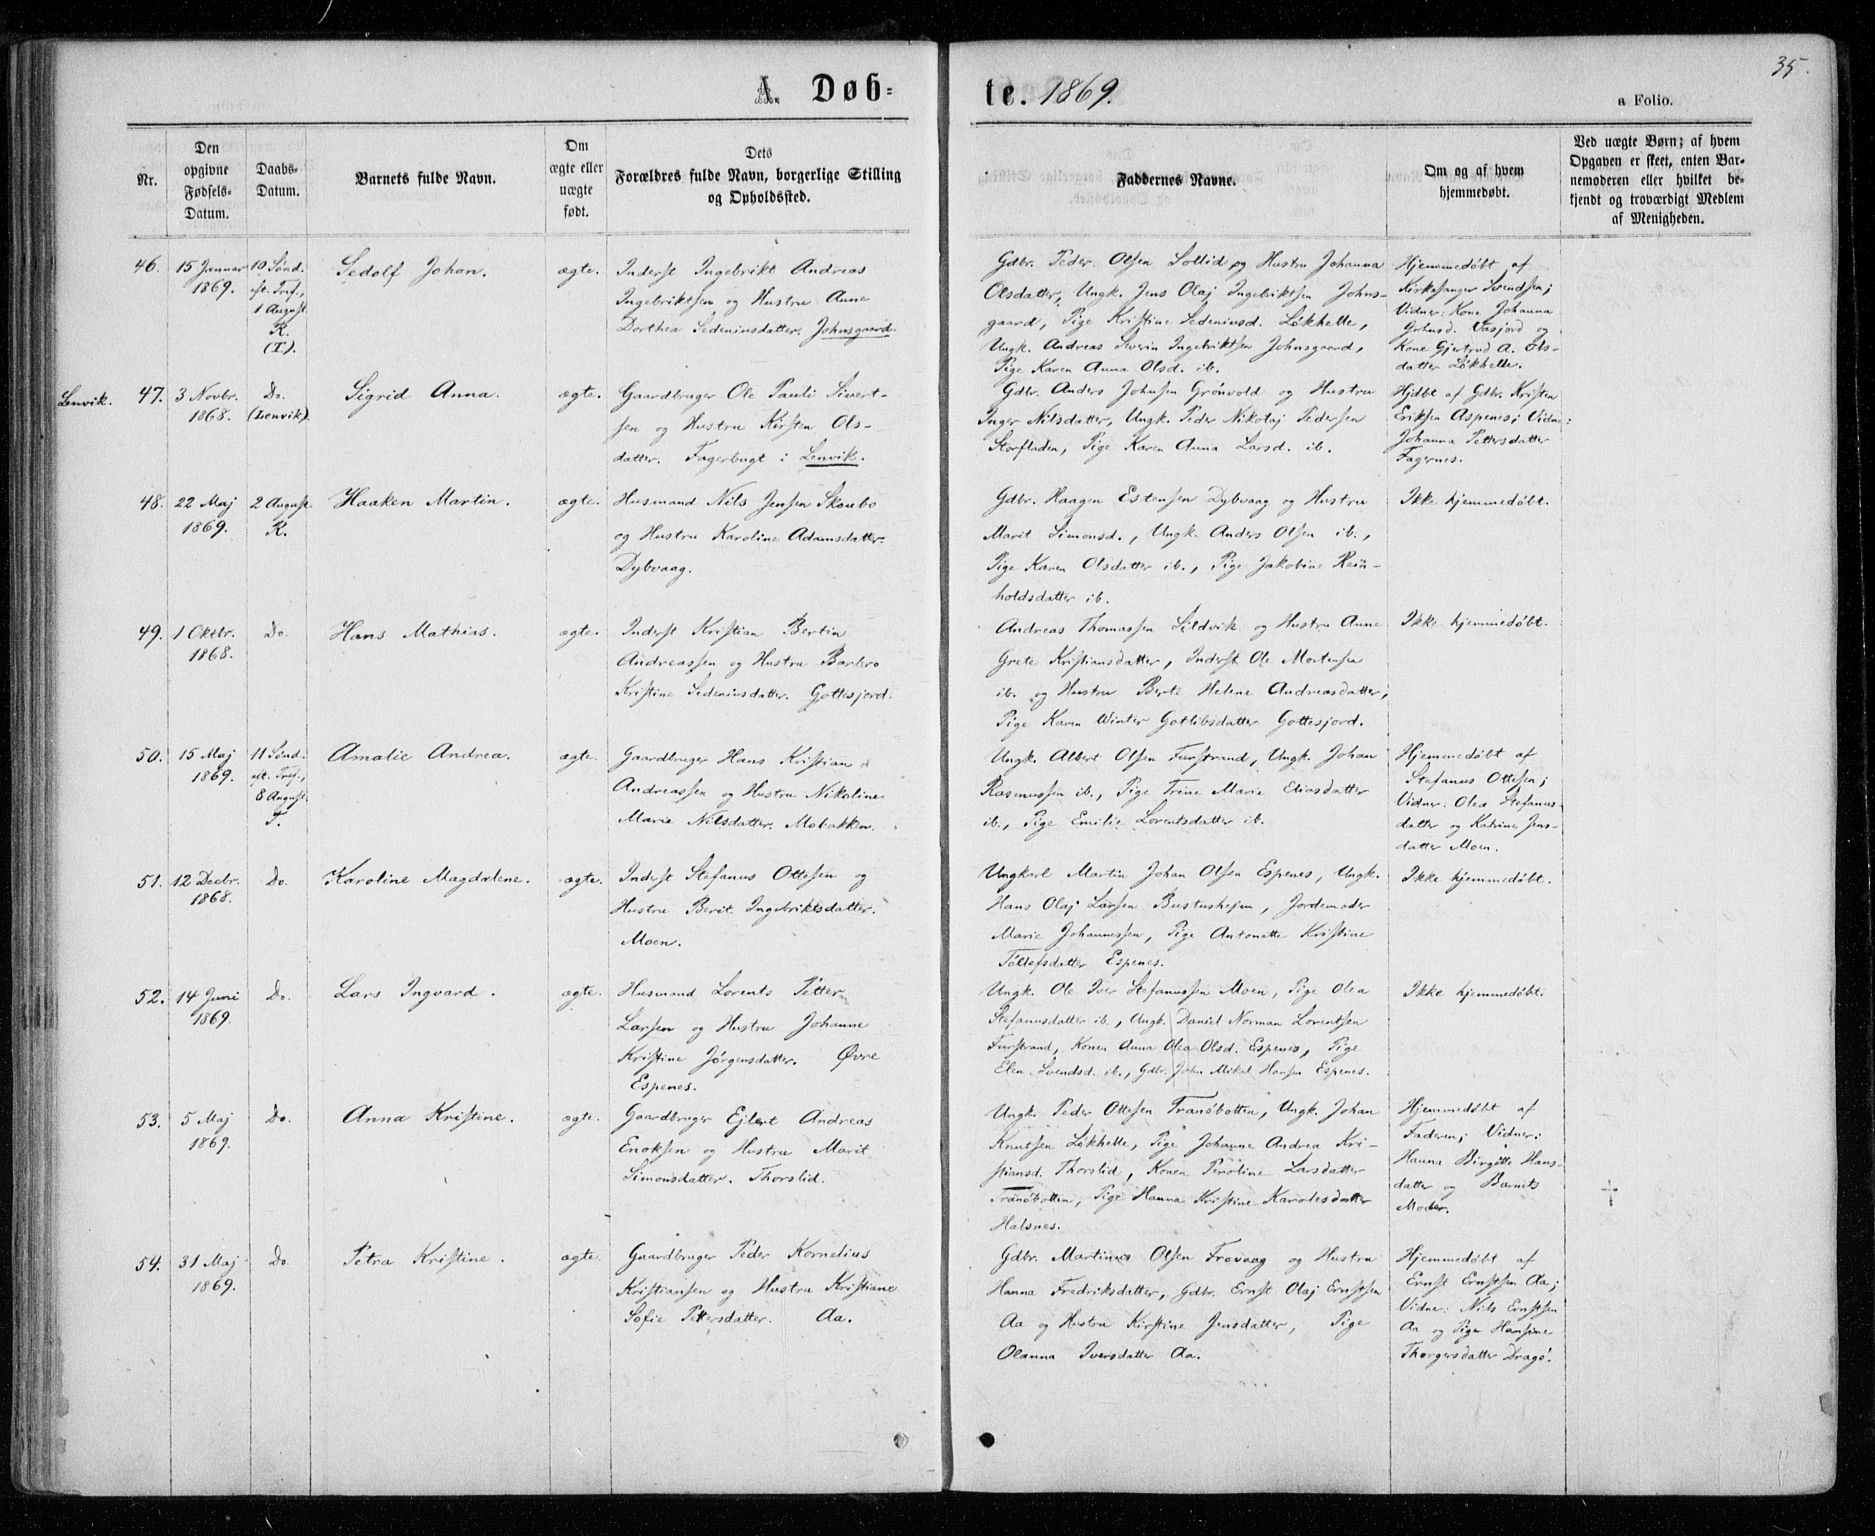 35.
A. Døb-
te. 1869.
a Folio.
Nr.
Den
opgivne
Fødsels-
Datum.
Daabs-
Datum.
Barnets fulde Navn.
Om
ægte eller
uægte
født.
Dets
Forældres fulde Navn, borgerlige Stilling
og Opholdssted.
Faddernes Navne.
Om og af hvem
hjemmedøbt.
Ved uægte Børn; af hvem
Opgaven er skeet, enten Bar-
nemoderen eller hvilket be-
kjendt og troværdigt Medlem
af Menigheden.
46.
15 Januar
1869.
10 Sønd.
eft. Tref.,
1 August
R.
(T.).
Sedolf Johan.
ægte.
Inderst Ingebrikt Andreas
Ingebriktsen og Hustru Anne
Dorthea Sedeniusdatter. Johnsgaard.
Gdbr. Peder Olsen Sollid og Hustru Johanna
Olsdatter, Ungk. Jens Olaj Ingebriktsen Johns-
gaard, Pige Kristine Sedeniusd. Løkhelle,
Ungk. Andreas Severin Ingebriktsen Johnsgaard,
Pige Karen Anna Olsd. ib.
Hjemmedøbt af
Kirkesanger Svendsen;
Vidner: Kone Johanna
Vasjord og
Kone Gjertrud A. Ols-
datter Løkhelle.
Lenvik.
47.
3 Novbr.
1868.
Do.
(Lenvik).
Sigrid Anna.
ægte.
Gaardbruger Ole Pauli Sivert-
sen og Hustru Kirsten Ols-
datter. Fagerbugt i Lenvik.
Gdbr. Anders Johnsen Grønvold og Hustru
Inger Nilsdatter, Ungk. Peder Nikolaj Pedersen
Storfladen, Pige Karen Anna Larsd. ib.
Hjdbt af Gdbr. Kristen
Eriksen Aspenes; Vidne:
Johanna Pettersdatter
Fagernes.
48.
22 Maj
1869.
2 August
R.
Haaken Martin.
ægte.
Husmand Nils Jensen Skoubo
og Hustru Karoline Adamsdatter.
Dybvaag.
Gdbr. Haagen Estensen Dybvaag og Hustru
Marit Simonsd., Ungk. Anders Olsen ib.,
Pige Karen Olsdatter ib., Pige Jakobine Rein-
holdsdatter ib.
Ikke hjemmedøbt.
49.
1 Oktbr.
1868.
Do.
Hans Mathias.
ægte.
Inderst Kristian Bertin
Andreassen og Hustru Barbro
Kristine Sedeniusdatter. Gottesjord.
Andreas Thomassen Sildvik og Hustru Anne
Grete Kristiansdatter, Inderst Ole Mortensen
ib. og Hustru Berte Helene Andreasdatter,
Pige Karen Winter Gotlibsdatter Gottesjord.
Ikke hjemmedøbt.
50.
15 Maj
1869.
11 Sønd.
eft. Tref.,
8 August.
T.
Amalie Andrea.
ægte.
Gaardbruger Hans Kristian
Andreassen og Hustru Nikoline
Marie Nilsdatter. Mobakken.
Ungk. Albert Olsen Furstrand, Ungk. Johan
Rasmussen ib., Pige Trine Marie Eliasdatter
ib., Pige Emilie Lorentsdatter ib.
Hjemmedøbt af
Stefanus Ottesen;
Vidner: Olea Stefanus-
datter og Katrine Jens-
datter Moen.
51.
12 Decbr.
1868.
Do.
Karoline Magdalene.
ægte.
Inderst Stefanus Ottesen og
Hustru Berit Ingebriktsdatter.
Moen.
Ungkarl Martin Johan Olsen Espenes, Ungk.
Hans Olaj Larsen Bustushejen, Jordemoder
Marie Johannessen, Pige Antonette Kristine
Tollefsdatter Espenes.
Ikke hjemmedøbt.
52.
14 Juni
1869.
Do.
Lars Ingvard.
ægte.
Husmand Lorents Petter
Larsen og Hustru Johanne
Kristine Jørgensdatter. Øvre
Espenes.
Ungk. Ole Iver Stefanussen Moen, Pige Olea
Stefanusdatter ib., Ungk. Daniel Norman Lorentsen
Furstrand, Konen Anna Olea Olsd. Espenes, Pige
Elen Svendsd. ib., Gdbr. John Mikal Hansen Espenes.
Ikke hjemmedøbt.
53.
5 Maj
1869.
Do.
Anna Kristine.
ægte.
Gaardbruger Ejlert Andreas
Enoksen og Hustru Marit
Simonsdatter. Thorslid.
Ungk. Peder Ottesen Tranøbotten, Ungk. Johan
Knutsen Løkhelle, Pige Johanne Andrea Kri-
stiansd. Thorslid, Konen Peroline Larsdatter
Tranøbotten, Pige Hanna Kristine Karolesdatter
Halsnes.
Hjemmedøbt af
Faderen; Vidner:
Hanna Birgitte Hans-
datter og Barnets
Moder.
†
54.
31 Maj
1869.
Do.
Petra Kristine.
ægte.
Gaardbruger Peder Kornelius
Kristiansen og Hustru Kristiane
Sofie Pettersdatter. Aa.
Gdbr. Martinus Olsen Frovaag og Hustru
Hanna Fredriksdatter, Gdbr. Ernst Olaj Ernstsen
Aa og Hustru Kirstine Jensdatter, Pige
Olanna Iversdatter Aa.
Hjemmedøbt af
Ernst Ernstsen Aa;
Vidner: Nils Ernstsen
Aa og Pige Hansine
Thorgersdatter Dragø.